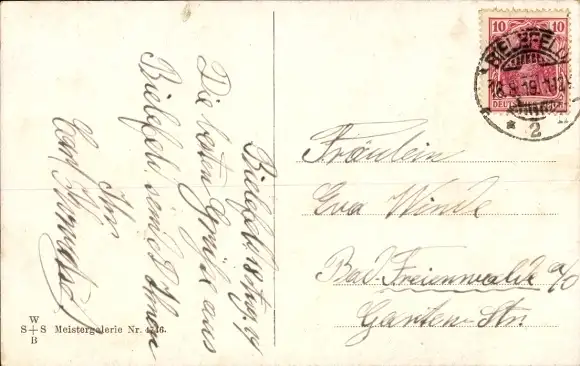 Bielefeld, 18. Aug. 19
Die besten Grüße aus
Bielefeld sendet Ihnen
Ihr
Carl
W
S+S Meistergalerie Nr.
B
10 10
BIELEFELD
18.8.19.
* 2
Fräulein
Eva Winde
Bad-Freienwalde a/O
Garten-Str.